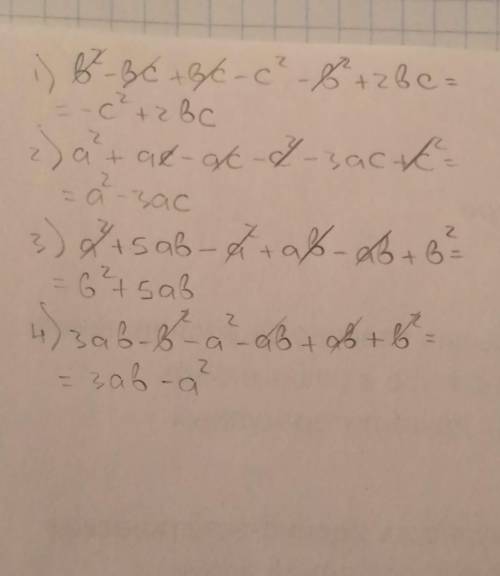 1) b² - bc + bc - c² - b² + 2bc =
= -c² + 2bc
2) a² + ac - ac - c² - 3ac + c² =
= a² - 3ac
3) a² + 5ab - a² + ab - ab + b² =
= b² + 5ab
4) 3ab - b² - a² - ab + ab + b² =
= 3ab - a²